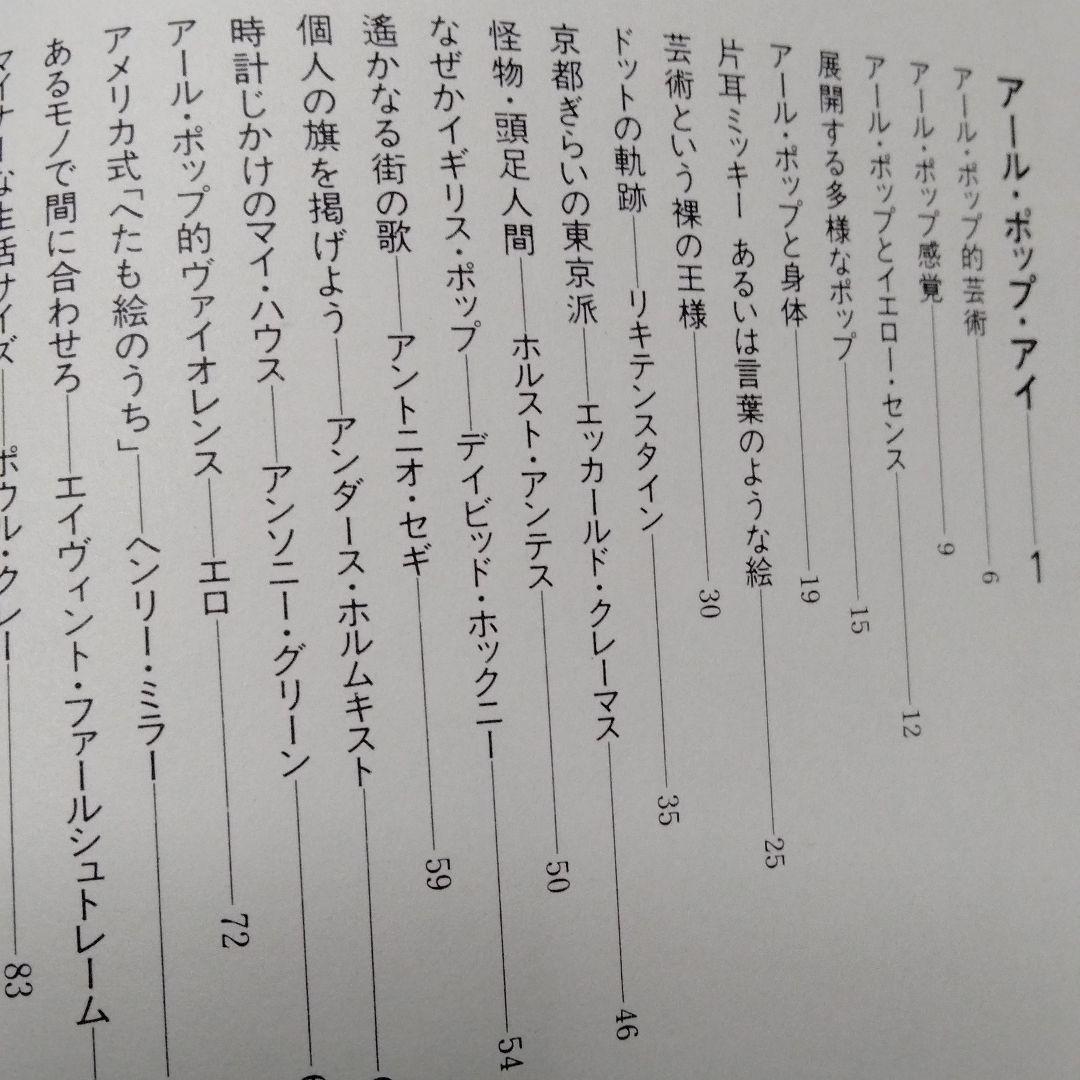 アール・ポップ・アイ――1
アール・ポップ的芸術――6
アール・ポップ感覚――9
アール・ポップとイエロー・センス――12
展開する多様なポップ――15
アール・ポップと身体――19
片耳ミッキー あるいは言葉のような絵――25
芸術という裸の王様――30
ドットの軌跡――リキテンスタイン――35
京都ぎらいの東京派――エッカールド・クレーマス――46
怪物・頭足人間――ホルスト・アンテス――50
なぜかイギリス・ポップ――デイビッド・ホックニー――54
遙かなる街の歌――アントニオ・セギ――59
個人の旗を掲げよう――アンダース・ホルムキスト――
時計じかけのマイ・ハウス――アンソニー・グリーン――
アール・ポップ的ヴァイオレンス――エロ――72
アメリカ式「へたも絵のうち」――ヘンリー・ミラー――
あるモノで間に合わせろ――エイヴィント・ファールシュトレーム――
マイナーな生活サイズ――ポウル・クレー――83